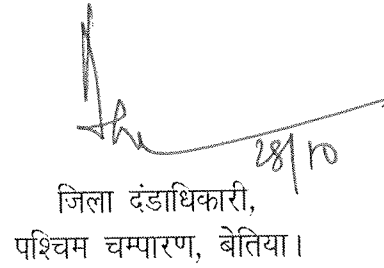 28/10
जिला दंडाधिकारी,
पश्चिम चम्पारण, बेतिया।